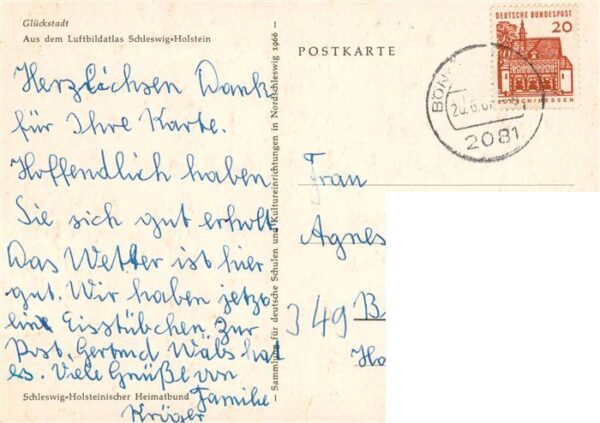 Glückstadt
Aus dem Luftbildatlas Schleswig-Holstein
Herzlichsen Dank
für Ihre Karte.
Hoffendlich haben
Sie sich gut erholt
Das Wetter ist hier
gut. Wir haben jetzt
ein Eisstübchen. Zur
Post. Gertrud Wäls hat
es. Viele Grüße von
Familie
Krüger
Schleswig-Holsteinischer Heimatbund
— Sammlung für deutsche Schulen und Kultureinrichtungen in Nordschleswig 1966 —
POSTKARTE
DEUTSCHE BUNDESPOST
20
LORSCH/HESSEN
BÖN
20.6.67
2081
Frau
Agnes
349 B
Ha